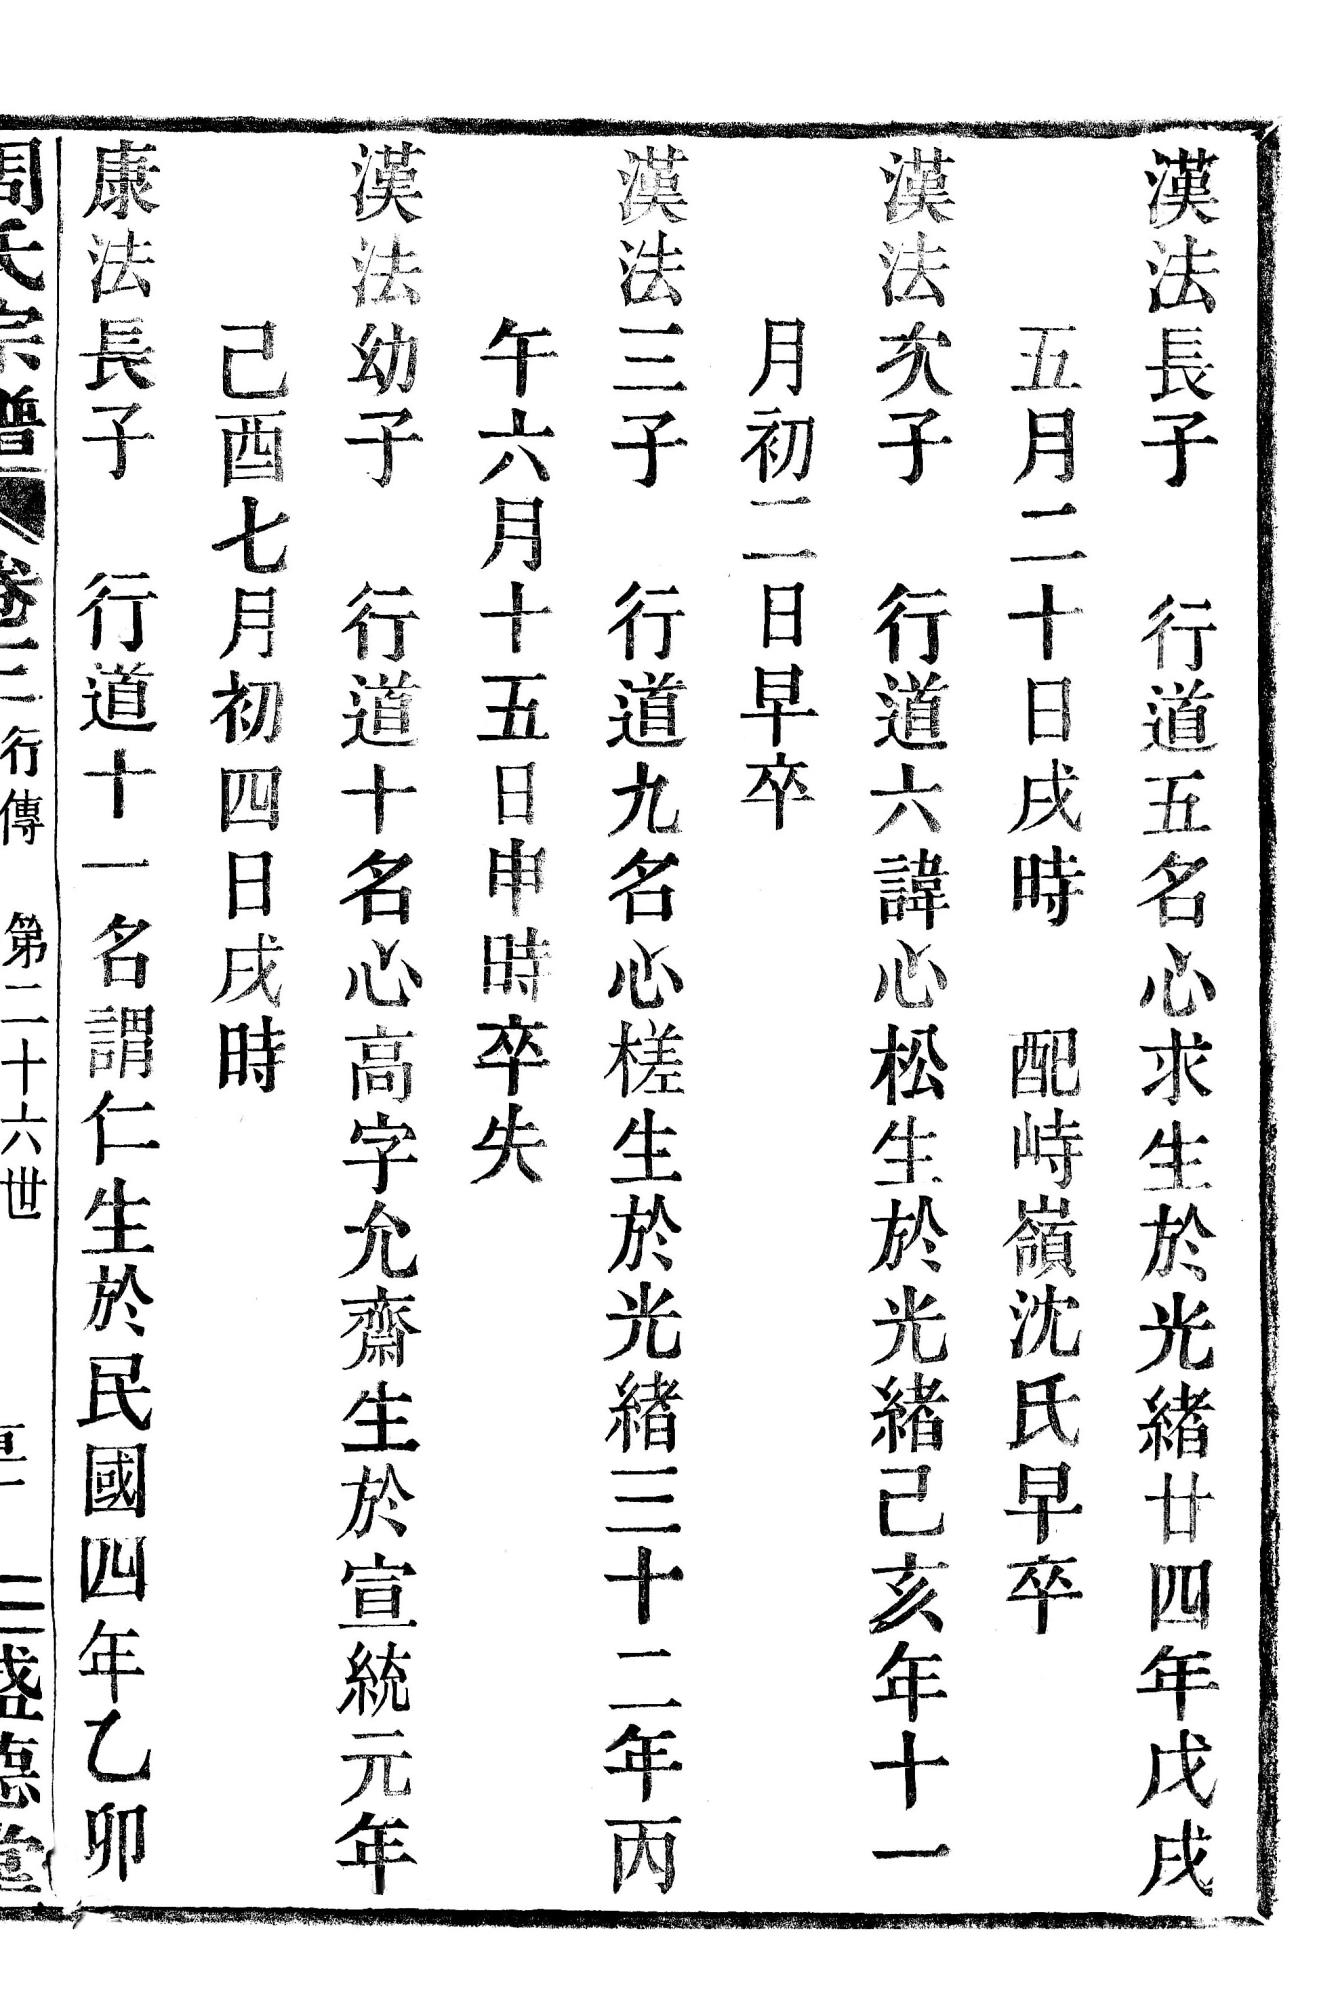 漢法長子　行道五名心求生於光緒廿四年戊戌
五月二十日戌時　配峙嶺沈氏早卒
漢法次子　行道六諱心松生於光緒己亥年十一
月初二日早卒
漢法三子　行道九名心槎生於光緒三十二年丙
午六月十五日申時卒失
漢法幼子　行道十名心高字允齋生於宣統元年
己酉七月初四日戌時
康法長子　行道十一名謂仁生於民國四年乙卯
周氏宗譜　卷三　行傳　第二十六世　盛德堂